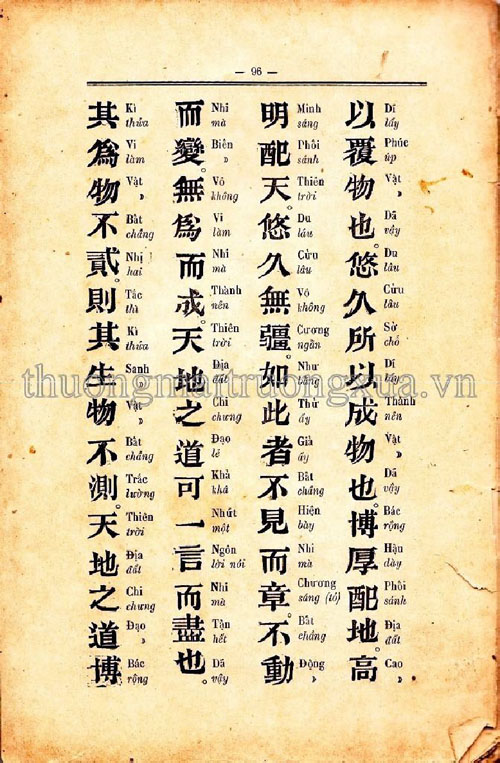 — 96 —
以覆物也。悠久所以成物也。博厚配地。高
Dĩ lấy Phúc úp Vật » Dã vậy Du lâu Cửu lâu Sở chỏ Dĩ lấy Thành nên Vật » Dã vậy Bác rộng Hậu dày Phối sánh Địa đất Cao »
明配天。悠久無疆。如此者不見而章。不動
Minh sáng Phối sánh Thiên trời Du lâu Cửu lâu Vô không Cương ngằn Như bằng Thử ấy Giả ấy Bất chẳng Hiện bày Nhi mà Chương sáng (tỏ) Bất chẳng Động »
而變。無爲而成。天地之道可一言而盡也。
Nhi mà Biến » Vô không Vi làm Nhi mà Thành nên Thiên trời Địa đất Chi chưng Đạo lẽ Khả khá Nhứt một Ngôn lời nói Nhi mà Tận hết Dã vậy
其爲物不貳。則其生物不測。天地之道博
Kì thửa Vi làm Vật » Bất chẳng Nhị hai Tắc thì Kì thửa Sanh » Vật » Bất chẳng Trắc lường Thiên trời Địa đất Chi chưng Đạo » Bác rộng
thuongmaitruongxua.vn